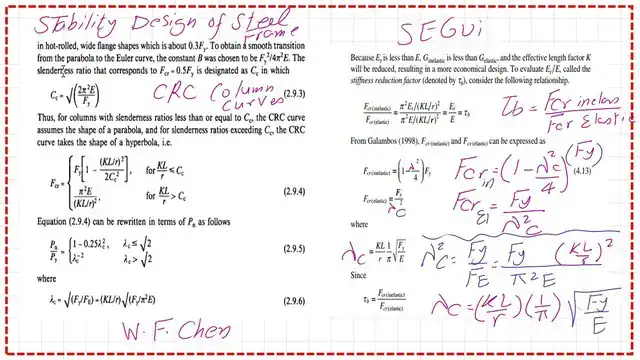 Stability Design of Steel
Frame
in hot-rolled, wide flange shapes which is about 0.3Fy. To obtain a smooth transition
from the parabola to the Euler curve, the constant B was chosen to be Fy²/4π²E. The
slenderness ratio that corresponds to Fcr = 0.5Fy is designated as Cc in which
Cc = √(2π²E/Fy) (2.9.3)
CRC Column
Curves
Thus, for columns with slenderness ratios less than or equal to Cc, the CRC curve
assumes the shape of a parabola, and for slenderness ratios exceeding Cc, the CRC
curve takes the shape of a hyperbola, i.e.
Fcr = { Fy[1 − (KL/r)²/2Cc²], for KL/r ≤ Cc
π²E/(KL/r)², for KL/r > Cc (2.9.4)
Equation (2.9.4) can be rewritten in terms of Pn as follows
Pn/Py = { 1 − 0.25λc², λc ≤ √2
λc⁻², λc > √2 (2.9.5)
where
λc = √(Fy/FE) = (KL/r)√(Fy/π²E) (2.9.6)
W.F. Chen
SEGUi
Because Et is less than E, Ginelastic is less than Gelastic, and the effective length factor K
will be reduced, resulting in a more economical design. To evaluate Et/E, called the
stiffness reduction factor (denoted by τb), consider the following relationship.
Fcr(inelastic)/Fcr(elastic) = π²Et/(KL/r)² / π²E/(KL/r)² = Et/E = τb
τb = Fcr inelas/For Elastic
From Galambos (1998), Fcr(inelastic) and Fcr(elastic) can be expressed as
Fcr(inelastic) = (1 − λ²/4) Fy (4.13)
Fcr in = (1 − λc²/4)(Fy)
Fcr(elastic) = Fy/λc²
Fcr El = Fy/λ²c
where
λc = KL/r 1/π √(Fy/E)
λc² = Fy/FE = Fy/π²E (KL/r)²
Since
τb = Fcr(inelastic)/Fcr(elastic)
λc = (KL/r)(1/π)√(Fy/E)